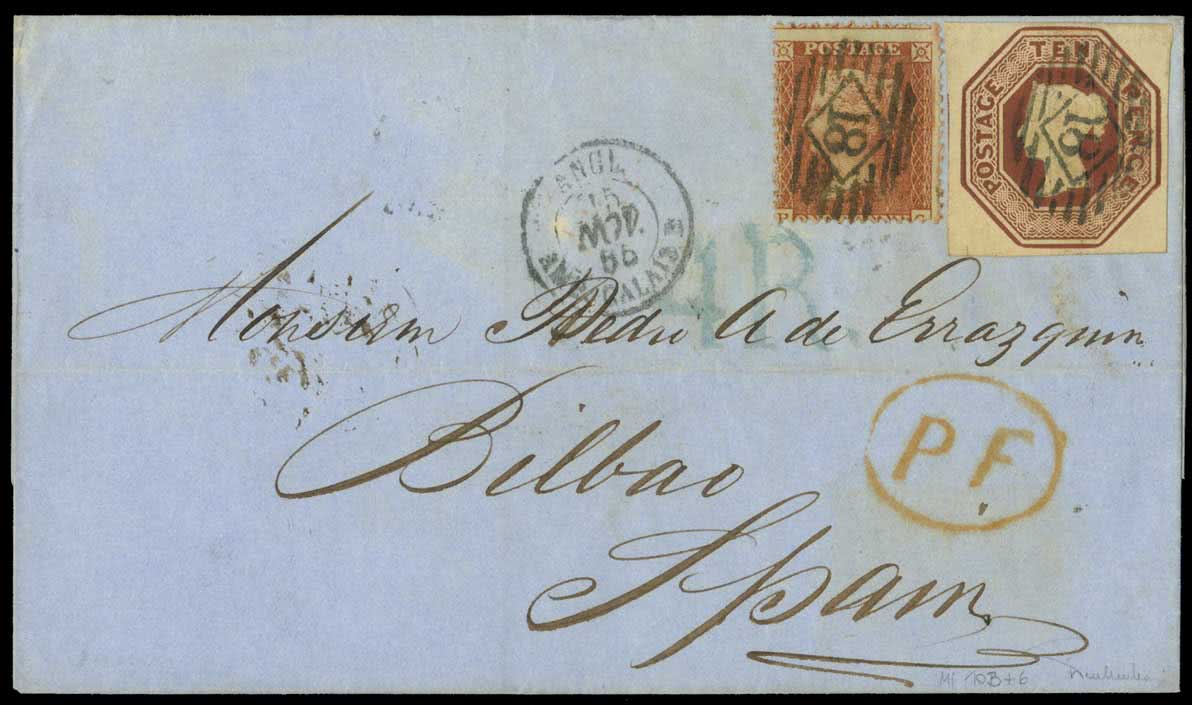 POSTAGE
18
TEN PENCE
POSTAGE
18
ANGL.
15
NOV.
55
CALAIS
4R
Monsieur Pedro A de Errazquin
Bilbao
Spain
P F
Mi 10B+6